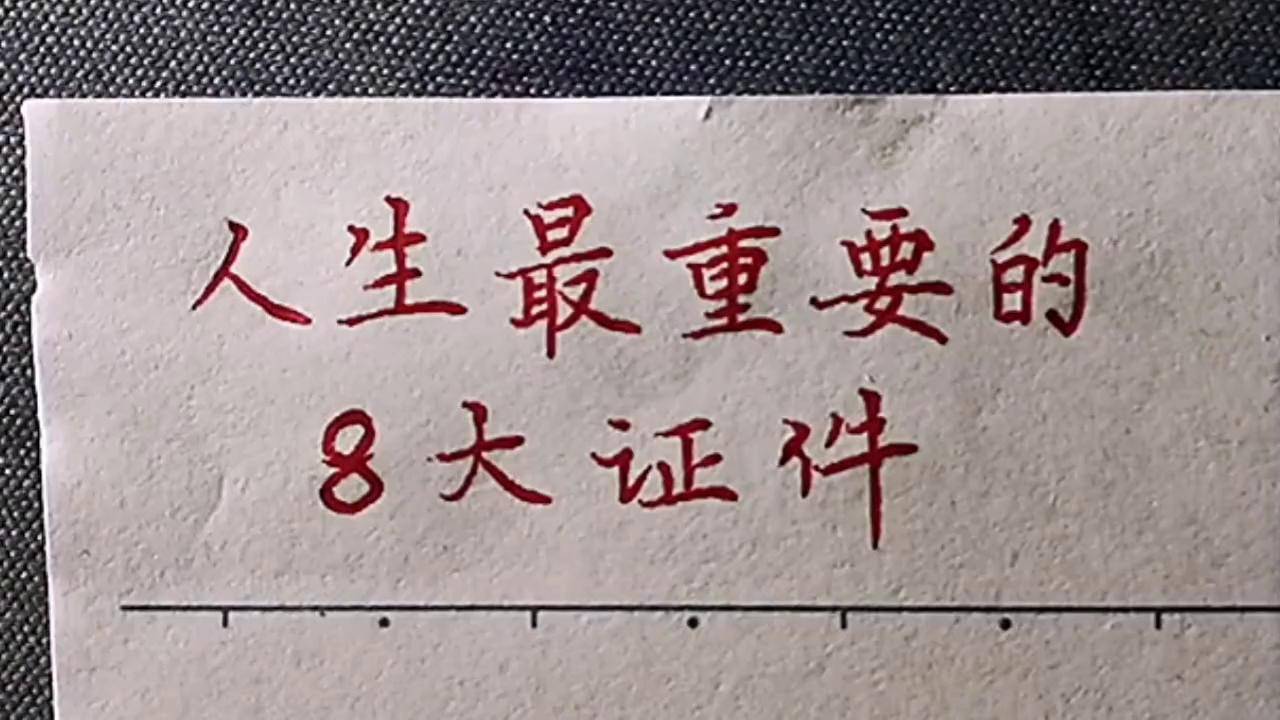 人生最重要的
8大证件